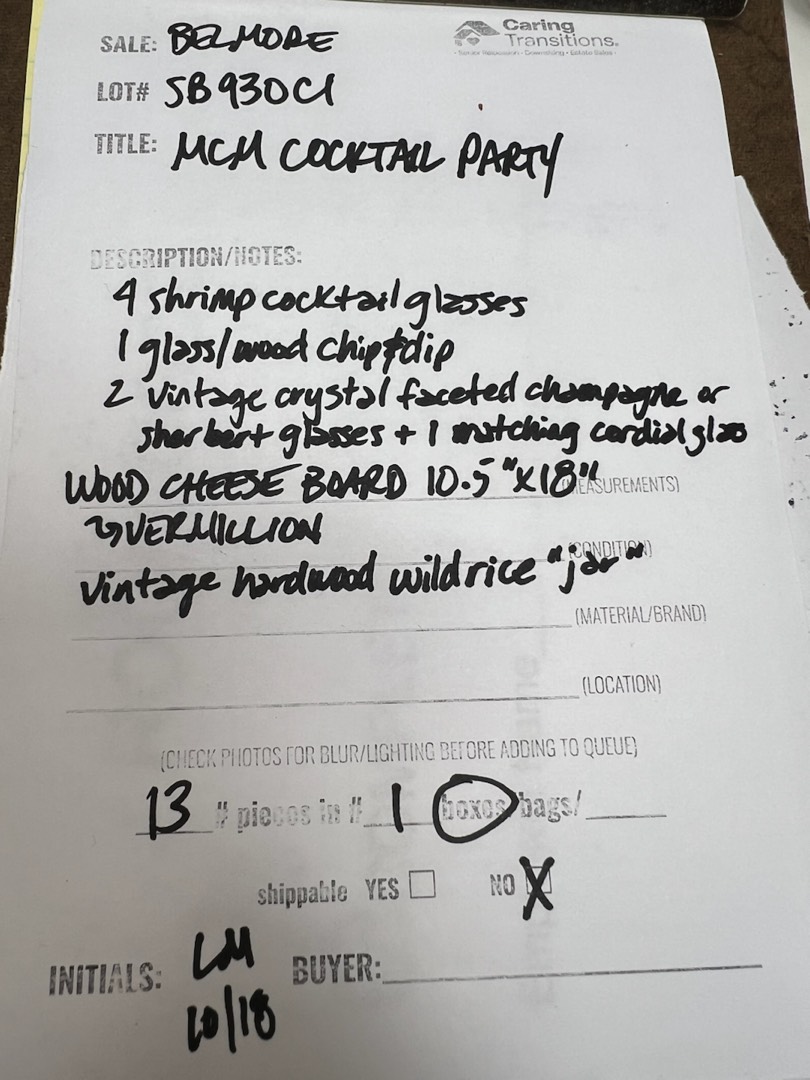 SALE: BELMORE
Caring
Transitions.
LOT# SB930C1
TITLE: MCM COCKTAIL PARTY
DESCRIPTION/NOTES:
4 shrimp cocktail glasses
1 glass/wood chip & dip
2 vintage crystal faceted champagne or
sherbert glasses + 1 matching cordial glass
WOOD CHEESE BOARD 10.5"X18"
(MEASUREMENTS)
↳ VERMILLION
(CONDITION)
vintage hardwood wild rice "jar"
(MATERIAL/BRAND)
(LOCATION)
(CHECK PHOTOS FOR BLUR/LIGHTING BEFORE ADDING TO QUEUE)
13 # pieces in # 1 boxes/bags/
shippable YES NO X
INITIALS: LM BUYER:
10/18